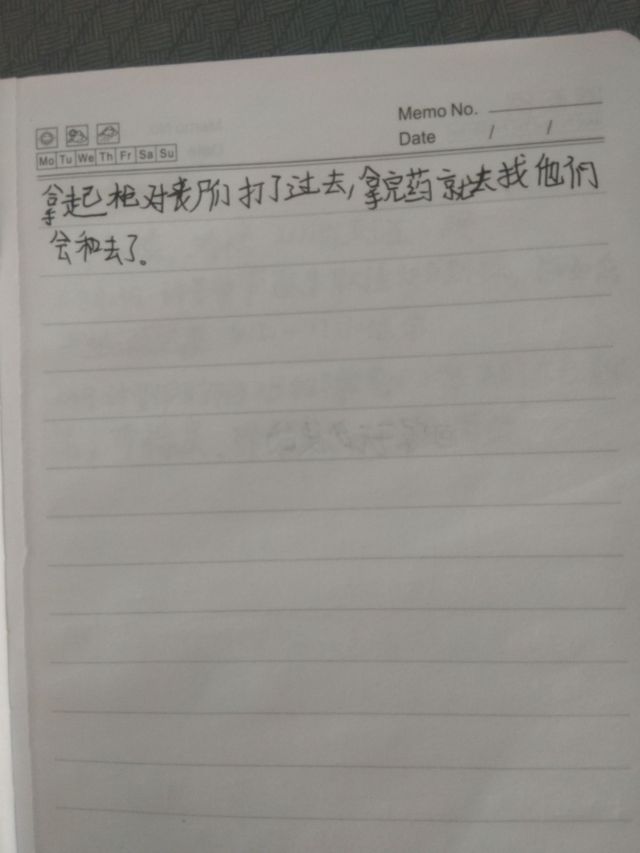 Memo No.
Date / /
Mo Tu We Th Fr Sa Su
拿起枪对丧尸们打了过去,拿完药就去找他们
会和去了。